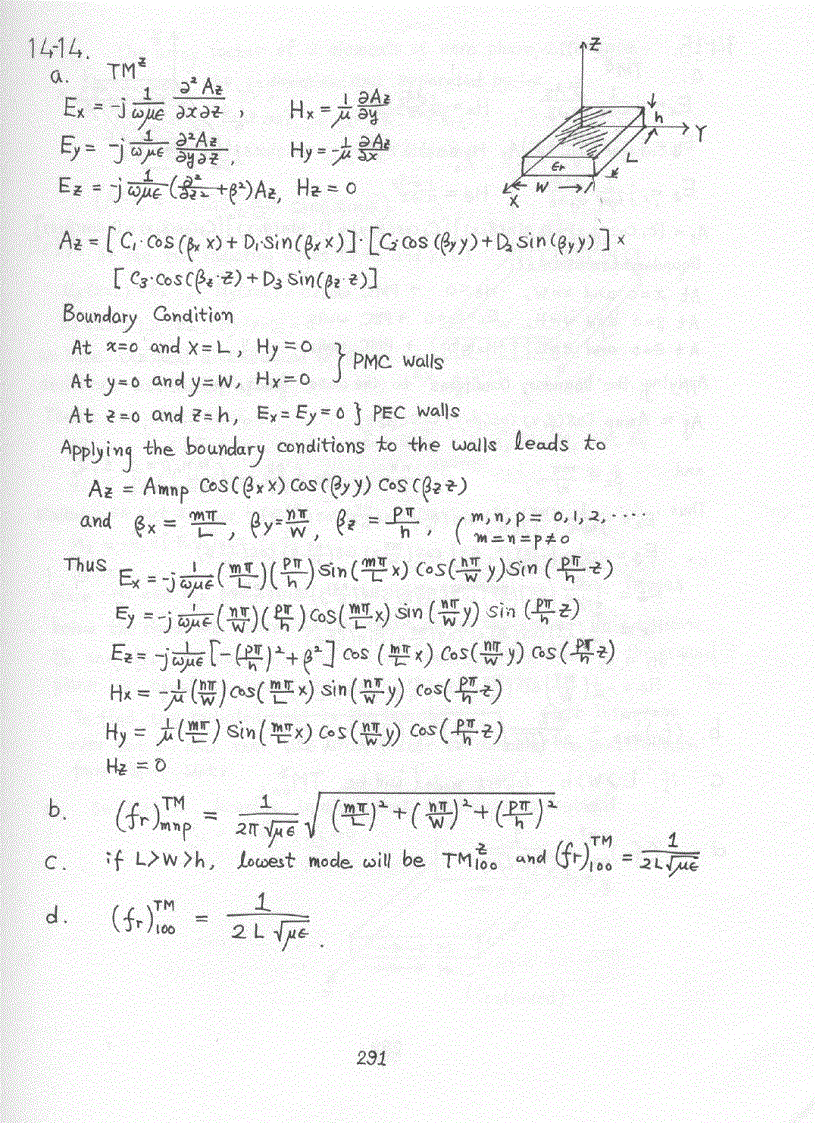 14-14.
a. TM^z
E_x = -j 1/(ωμε) ∂²A_z/∂x∂z , H_x = 1/μ ∂A_z/∂y
E_y = -j 1/(ωμε) ∂²A_z/∂y∂z , H_y = -1/μ ∂A_z/∂x
E_z = -j 1/(ωμε) (∂²/∂z² + β²) A_z, H_z = 0
Z
h
Y
L
εr
W
X
A_z = [C_1·cos(β_x x) + D_1·sin(β_x x)]·[C_2·cos(β_y y) + D_2 sin(β_y y)] ×
[C_3·cos(β_z·z) + D_3 sin(β_z·z)]
Boundary Condition
At x=0 and x=L, H_y=0
At y=0 and y=W, H_x=0 } PMC walls
At z=0 and z=h, E_x=E_y=0 } PEC walls
Applying the boundary conditions to the walls leads to
A_z = A_mnp cos(β_x x) cos(β_y y) cos(β_z z)
and β_x = mπ/L, β_y = nπ/W, β_z = pπ/h, ( m,n,p = 0,1,2,····
m=n=p≠0
Thus E_x = -j 1/(ωμε) (mπ/L)(pπ/h) sin(mπ/L x) cos(nπ/W y) sin(pπ/h z)
E_y = -j 1/(ωμε) (nπ/W)(pπ/h) cos(mπ/L x) sin(nπ/W y) sin(pπ/h z)
E_z = -j 1/(ωμε) [-(pπ/h)² + β²] cos(mπ/L x) cos(nπ/W y) cos(pπ/h z)
H_x = -1/μ (nπ/W) cos(mπ/L x) sin(nπ/W y) cos(pπ/h z)
H_y = 1/μ (mπ/L) sin(mπ/L x) cos(nπ/W y) cos(pπ/h z)
H_z = 0
b. (f_r)^TM_mnp = 1/(2π√με) √((mπ/L)² + (nπ/W)² + (pπ/h)²)
c. if L>W>h, lowest mode will be TM^z_100 and (f_r)^TM_100 = 1/(2L√με)
d. (f_r)^TM_100 = 1/(2L√με).
291